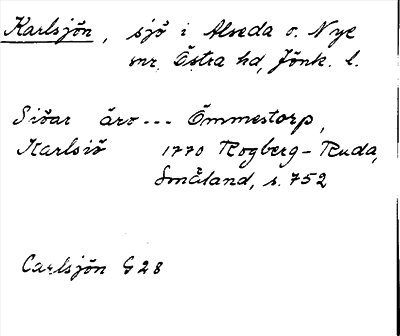 Karlsjön, sjö i Alseda o. Nye
snr, Östra hd, Jönk. l.
Siöar äro --- Ömmestorp,
Karlsiö 1770 Rogberg-Ruda,
Småland, s. 752
Carlsjön G28